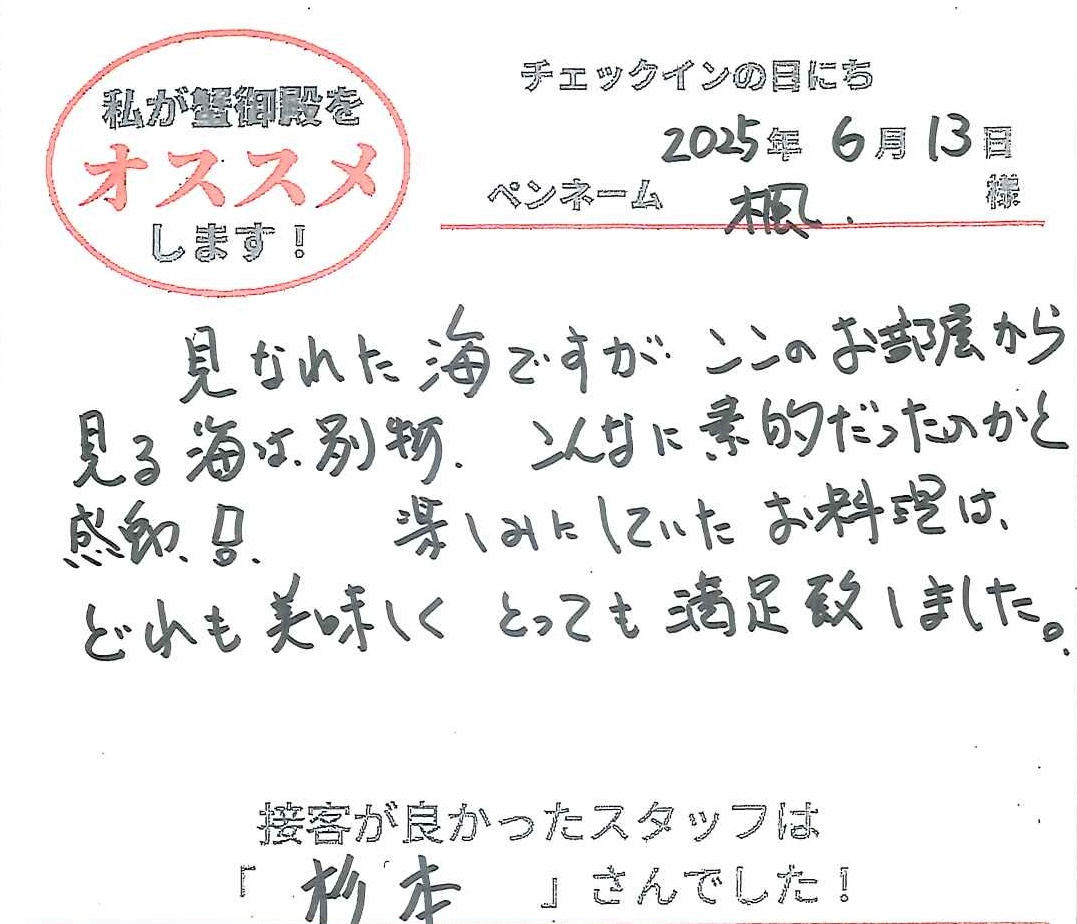 私が蟹御殿を
オススメ
します！
チェックインの日にち
2025年 6月 13日
ペンネーム 楓. 様
見なれた海ですが ここのお部屋から
見る海は、別物. こんなに素的だったのかと
感動、!!. 楽しみにしていたお料理は、
どれも美味しく とっても満足致しました。
接客が良かったスタッフは
「 杉本 」さんでした！